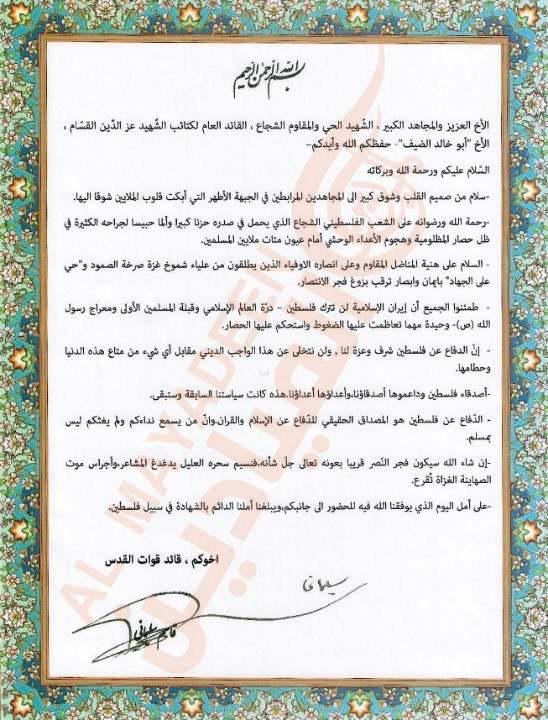 بسم الله الرحمن الرحيم
الأخ العزيز والمجاهد الكبير ، الشّهيد الحي والمقاوم الشجاع ، القائد العام لكتائب الشّهيد عز الدّين القسّام ،
الأخ "أبو خالد الضيف"- حفظكم الله وأيدكم–
السّلام عليكم ورحمة الله وبركاته
-سلام من صميم القلب وشوق كبير الى المجاهدين المرابطين في الجبهة الأطهر التي أبكت قلوب الملايين شوقا اليها.
-رحمة الله ورضوانه على الشعب الفلسطيني الشجاع الذي يحمل في صدره حزنا كبيرا وألما حبيسا لجراحه الكثيرة في
ظل حصار المظلومية وهجوم الأعداء الوحشي أمام عيون مئات ملايين المسلمين.
- السلام على هنية المناضل المقاوم وعلى انصاره الاوفياء الذين يطلقون من علياء شموخ غزة صرخة الصمود و"حي
على الجهاد" بايمان وابصار ترقب بزوغ فجر الانتصار.
- طمئنوا الجميع أن إيران الإسلامية لن تترك فلسطين – درّة العالم الإسلامي وقبلة المسلمين الأولى ومعراج رسول
الله (ص)- وحيدة مهما تعاظمت عليها الضغوط واستحكم عليها الحصار.
- إنّ الدفاع عن فلسطين شرف وعزة لنا , ولن نتخلى عن هذا الواجب الديني مقابل أي شيء من متاع هذه الدنيا
وحطامها.
-أصدقاء فلسطين وداعموها أصدقاؤنا,وأعداؤها أعداؤنا,هذه كانت سياستنا السابقة وستبقى.
- الدّفاع عن فلسطين هو المصداق الحقيقي للدّفاع عن الإسلام والقران,وانّ من يسمع نداءكم ولم يغثكم ليس
بمسلم.
-إن شاء الله سيكون فجر النّصر قريبا بعونه تعالى جلّ شأنه,فنسيم سحره العليل يدغدغ المشاعر,وأجراس موت
الصهاينة الغزاة تُقرع.
-على أمل اليوم الذي يوفقنا الله فيه للحضور الى جانبكم,ويبلغنا أملنا الدائم بالشهادة في سبيل فلسطين.
اخوكم ، قائد قوات القدس
سليمانی
قاسم سلیمانی
AL MAYADEEN
الميادين